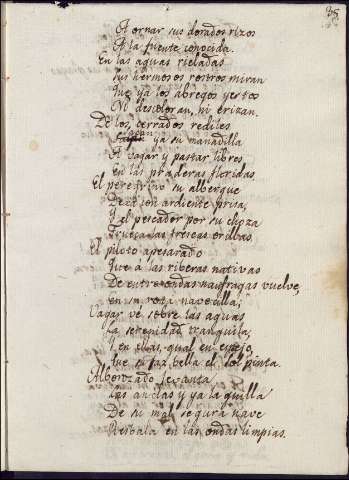 A ornar sus dorados rizos
A la fuente conocida.
En las aguas rieladas
Sus hermosos rostros miran
Que ya los abregos yertos
Ni descoloran, ni erizan.
De los cerrados rediles
sacan ya su manadilla
A vagar y pastar libres
En las praderas floridas.
El peregrino su albergue
Deja con ardiente prisa,
Y el pescador por su choza
Trueca las frescas orillas.
El piloto apesarado
Que a las riberas nativas
De entre ondas naufragas vuelve,
en su rota navecilla;
Vagar ve sobre las aguas
La serenidad tranquila;
Y en ellas, qual en espejo,
Que su faz bella el sol pinta.
Alborozado levanta
Las anclas y ya la quilla
De su mal segura nave
Resbala en las ondas limpias.